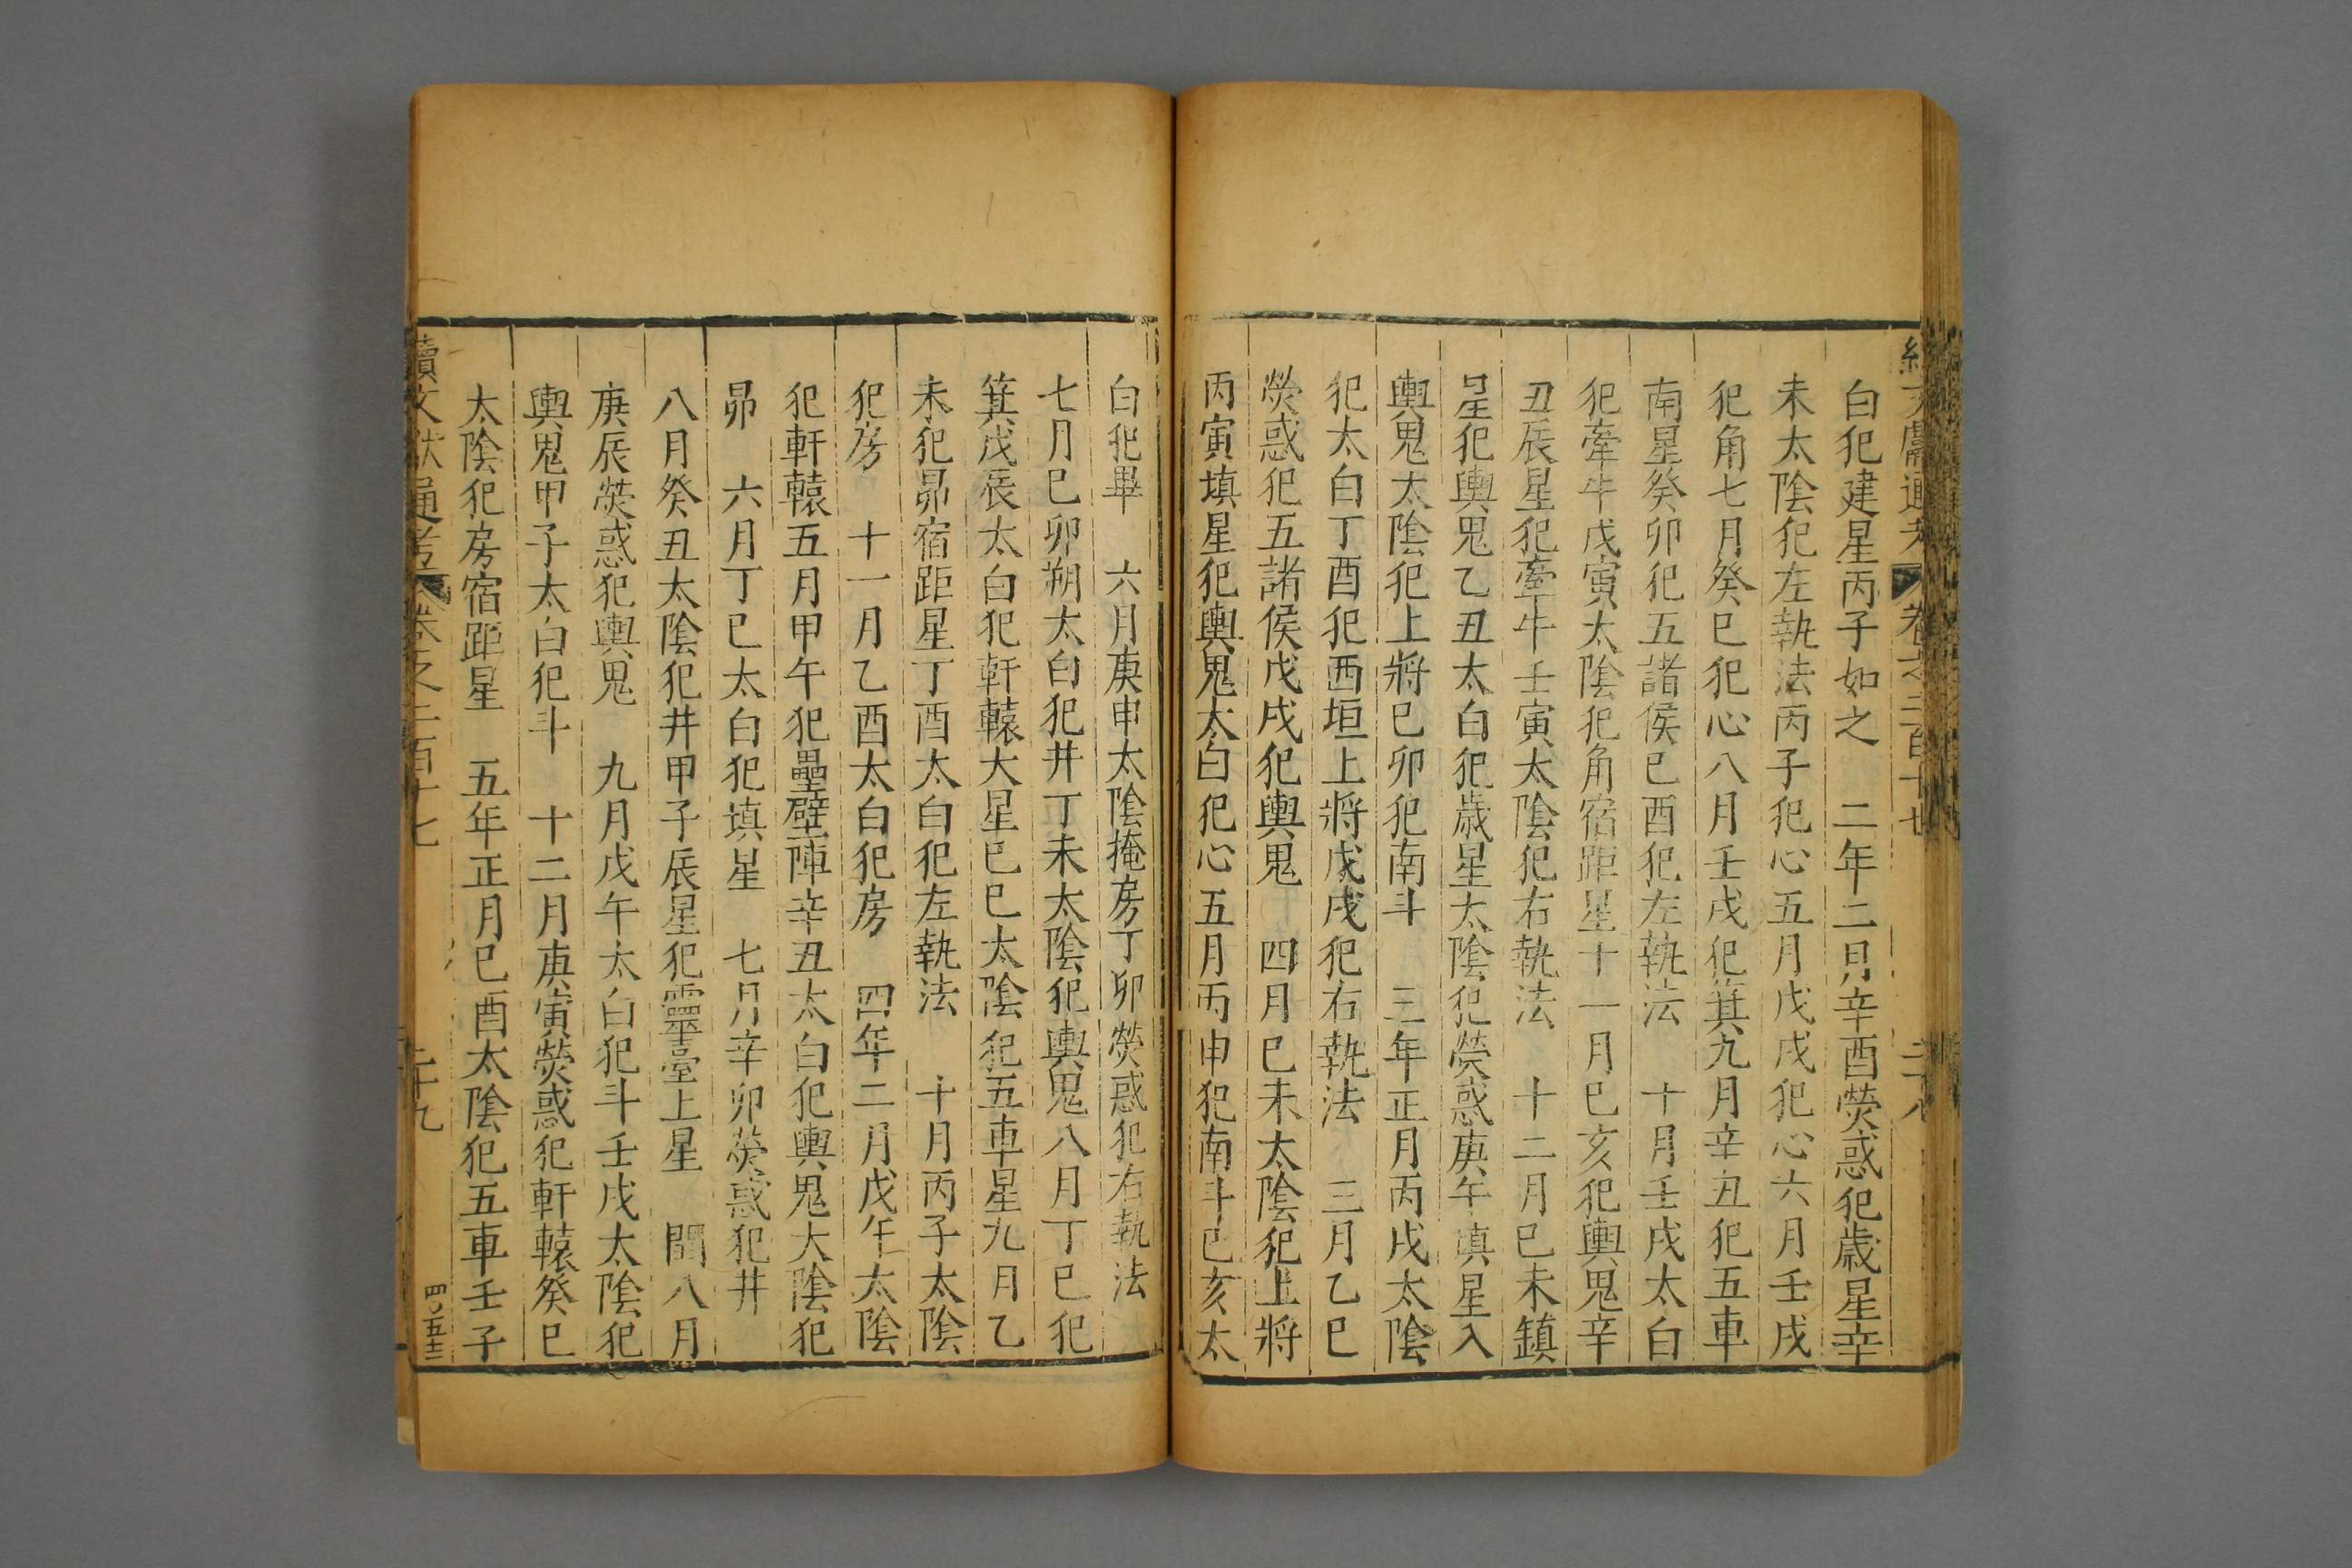 白犯建星丙子如之　二年二月辛酉熒惑犯歲星辛
未太陰犯左執法丙子犯心五月戊戌犯心六月壬戌
犯角七月癸巳犯心八月壬戌犯箕九月辛丑犯五車
南星癸卯犯五諸侯已酉犯左執法　十月壬戌太白
犯牽牛戊寅太陰犯角宿距星十一月巳亥犯輿鬼辛
丑辰星犯牽牛壬寅太陰犯右執法　十二月巳未鎮
星犯輿鬼乙丑太白犯歲星太陰犯熒惑庚午填星入
輿鬼太陰犯上將巳卯犯南斗　三年正月丙戌太陰
犯太白丁酉犯西垣上將戊戌犯右執法　三月乙巳
熒惑犯五諸侯戊戌犯輿鬼　四月巳未太陰犯上將
丙寅填星犯輿鬼太白犯心五月丙申犯南斗巳亥太
白犯畢　六月庚申太陰掩房丁卯熒惑犯右執法
七月巳卯朔太白犯井丁未太陰犯輿鬼八月丁巳犯
箕戊辰太白犯軒轅大星巳巳太陰犯五車星九月乙
未犯昴宿距星丁酉太白犯左執法　十月丙子太陰
犯房　十一月乙酉太白犯房　四年二月戊午太陰
犯軒轅五月甲午犯壘壁陣辛丑太白犯輿鬼太陰犯
昴　六月丁巳太白犯填星　七月辛卯熒惑犯井
八月癸丑太陰犯井甲子辰星犯靈臺上星　閏八月
庚辰熒惑犯輿鬼　九月戊午太白犯斗壬戌太陰犯
輿鬼甲子太白犯斗　十二月庚寅熒惑犯軒轅癸巳
太陰犯房宿距星　五年正月巳酉太陰犯五車壬子
續文獻通考　卷之二百十七　二十九